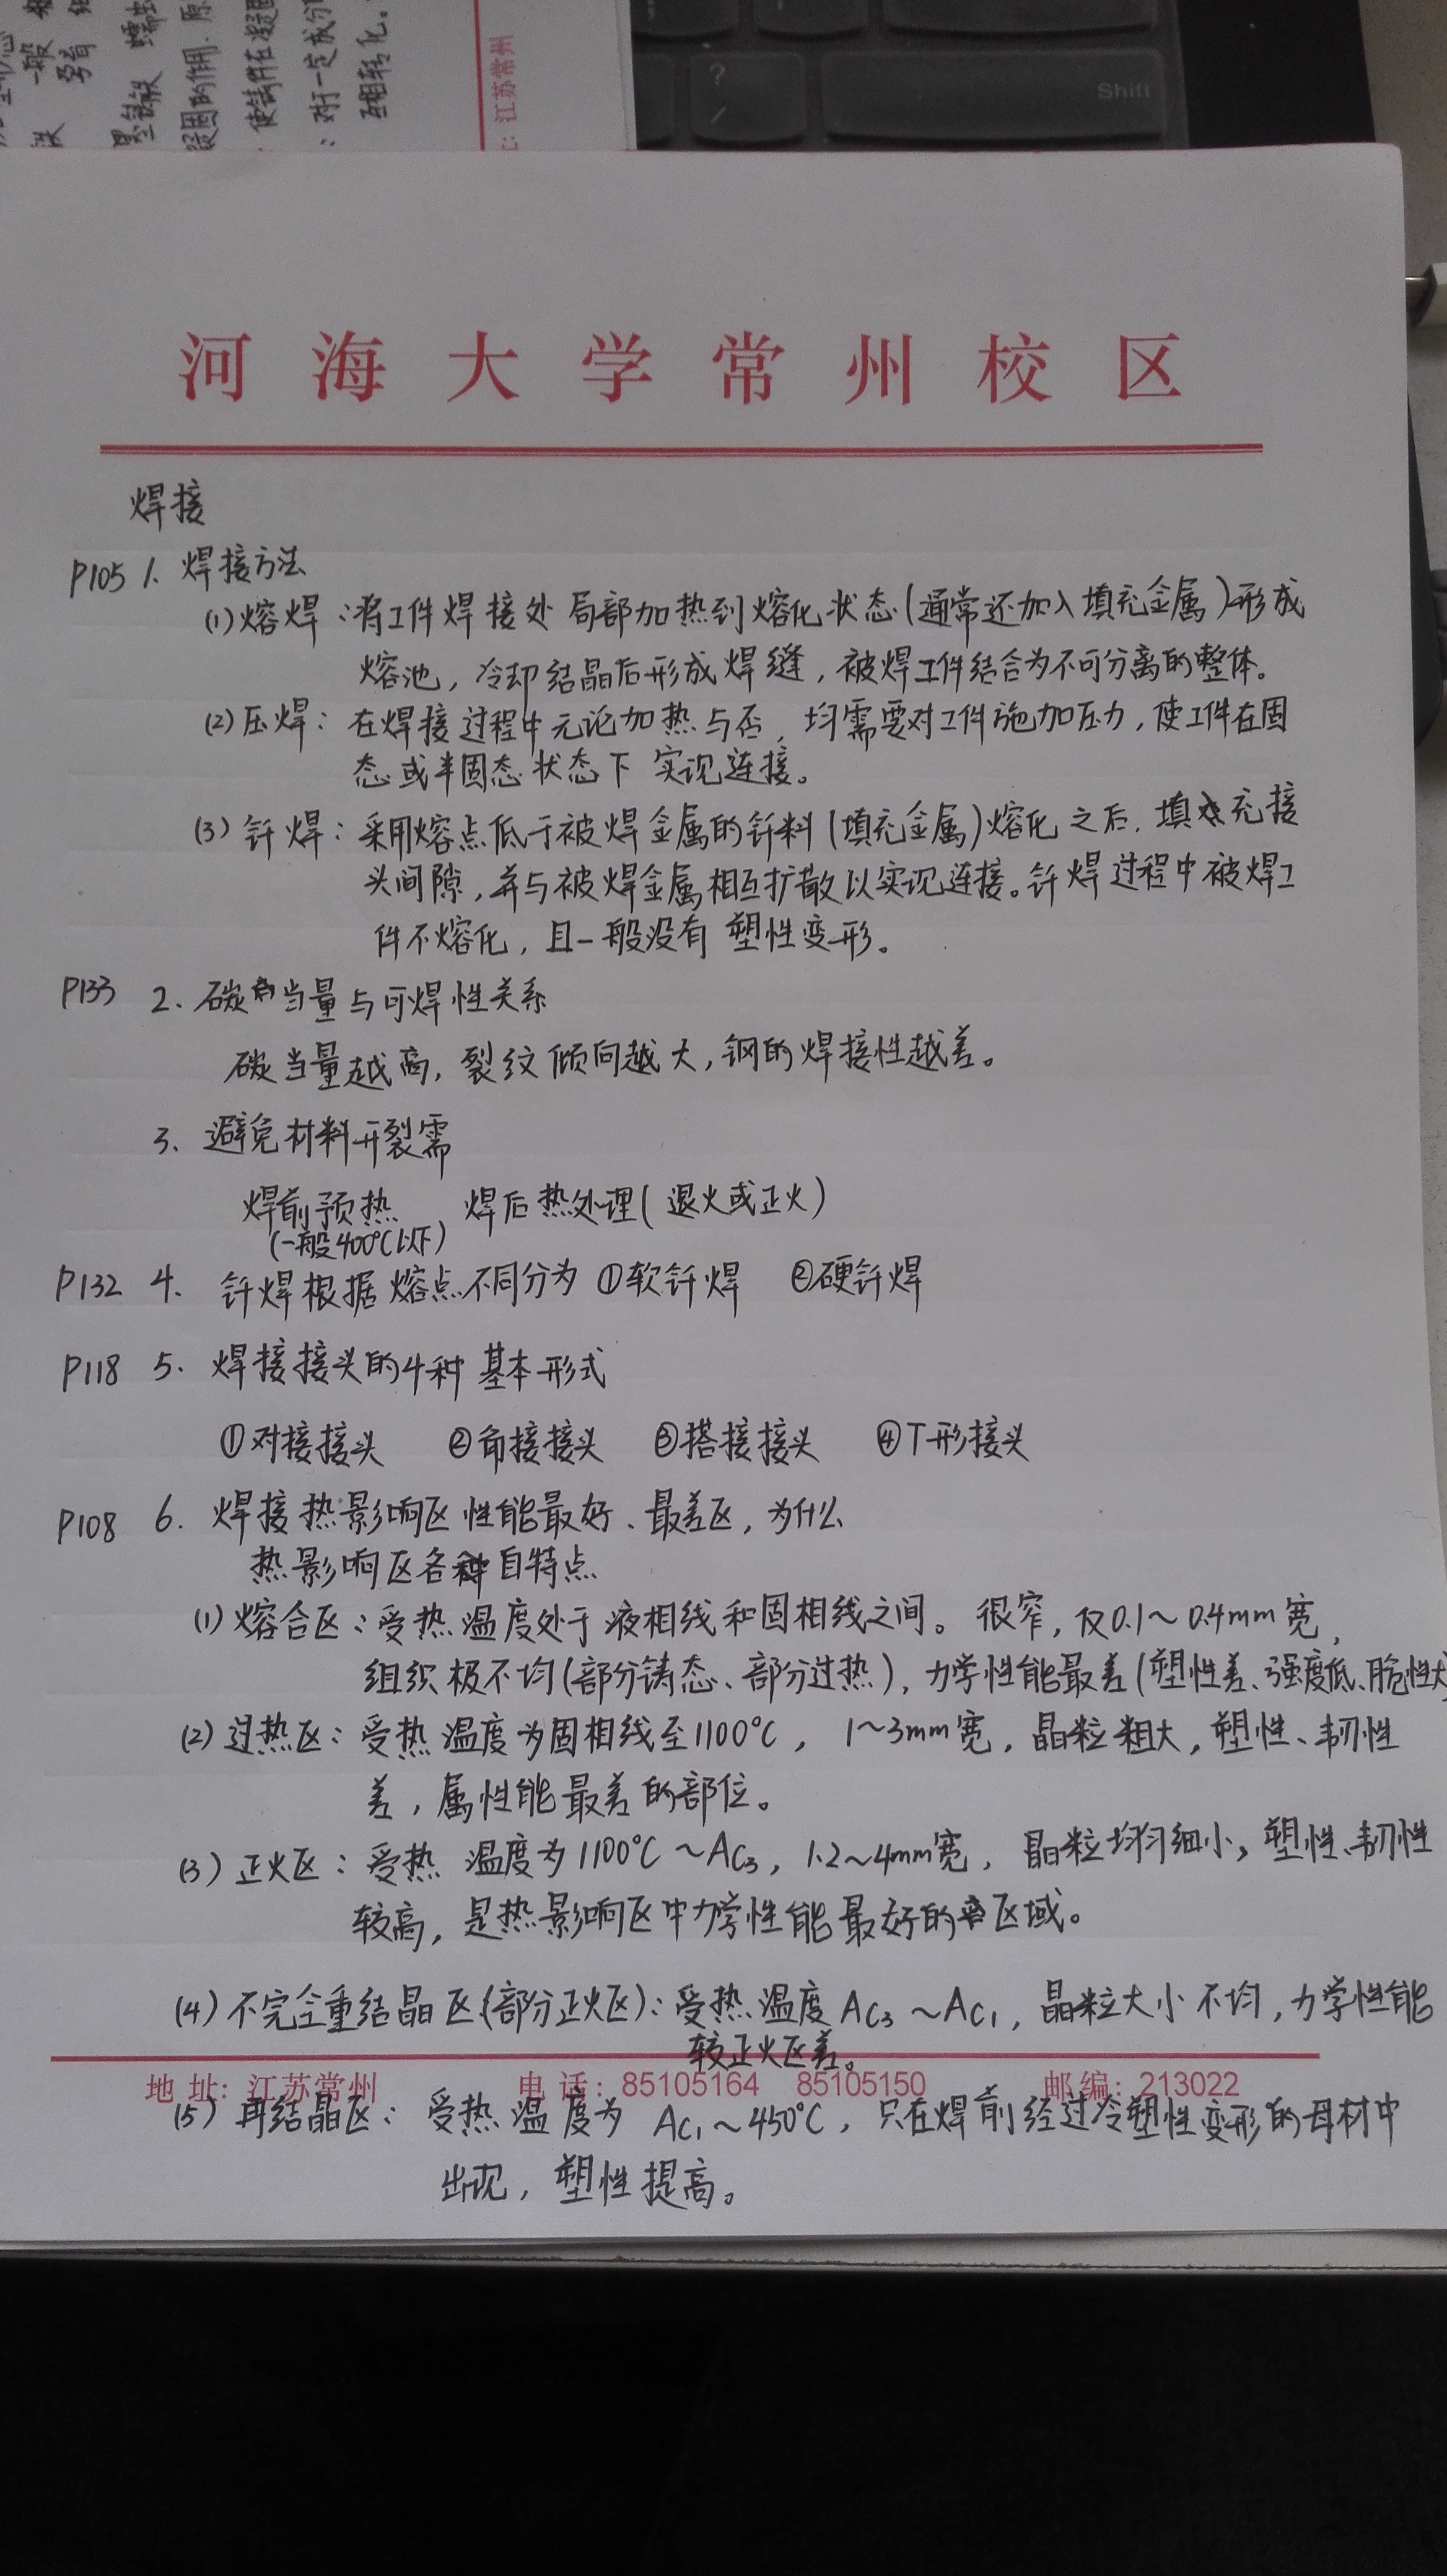 河海大学常州校区
焊接
P105 1. 焊接方法
(1)熔焊：将工件焊接处局部加热到熔化状态(通常还加入填充金属)形成
熔池，冷却结晶后形成焊缝，被焊工件结合为不可分离的整体。
(2)压焊：在焊接过程中无论加热与否，均需要对工件施加压力，使工件在固
态或半固态状态下实现连接。
(3)钎焊：采用熔点低于被焊金属的钎料(填充金属)熔化之后，填充接
头间隙，并与被焊金属相互扩散以实现连接。钎焊过程中被焊工
件不熔化，且一般没有塑性变形。
P133 2. 碳当量与可焊性关系
碳当量越高，裂纹倾向越大，钢的焊接性越差。
3. 避免材料开裂需
焊前预热 焊后热处理(退火或正火)
(一般400℃以下)
P132 4. 钎焊根据熔点不同分为 ①软钎焊 ②硬钎焊
P118 5. 焊接接头的4种基本形式
①对接接头 ②角接接头 ③搭接接头 ④T形接头
P108 6. 焊接热影响区性能最好、最差区，为什么
热影响区各自特点
(1)熔合区：受热温度处于液相线和固相线之间。很窄，仅0.1~0.4mm宽，
组织极不均(部分铸态、部分过热)，力学性能最差(塑性差、强度低、脆性大
(2)过热区：受热温度为固相线至1100℃，1~3mm宽，晶粒粗大，塑性、韧性
差，属性能最差的部位。
(3)正火区：受热温度为1100℃~AC3，1.2~4mm宽，晶粒均匀细小，塑性、韧性
较高，是热影响区中力学性能最好的区域。
(4)不完全重结晶区(部分正火区)：受热温度AC3~AC1，晶粒大小不均，力学性能
较正火区差。
地址：江苏常州 电话：85105164 85105150 邮编：213022
(5)再结晶区：受热温度为AC1~450℃，只在焊前经过冷塑性变形的母材中
出现，塑性提高。
Shift
?
/
江苏常州